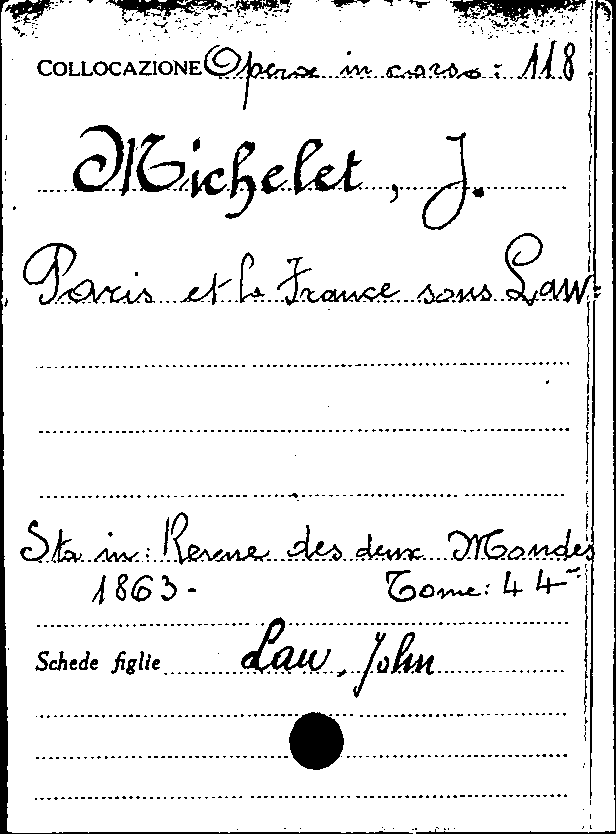 COLLOCAZIONE Opera in corso: 118
Michelet, J.
Paris et la France sous Law-
Sta in: Revue des deux Mondes
1863- Tome: 44-
Schede figlie Law, John